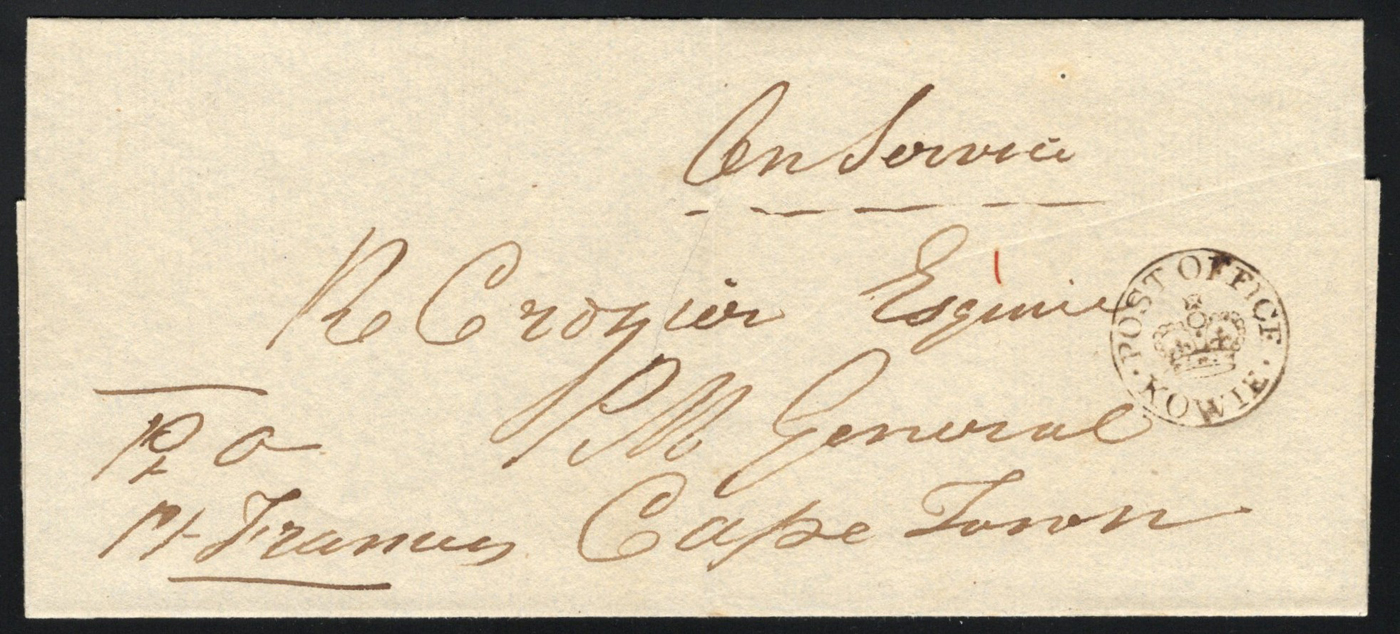 On Service
R Crozier Esquire
P M General
Cape Town
P O
Pt Francis
POST OFFICE
KOWIE